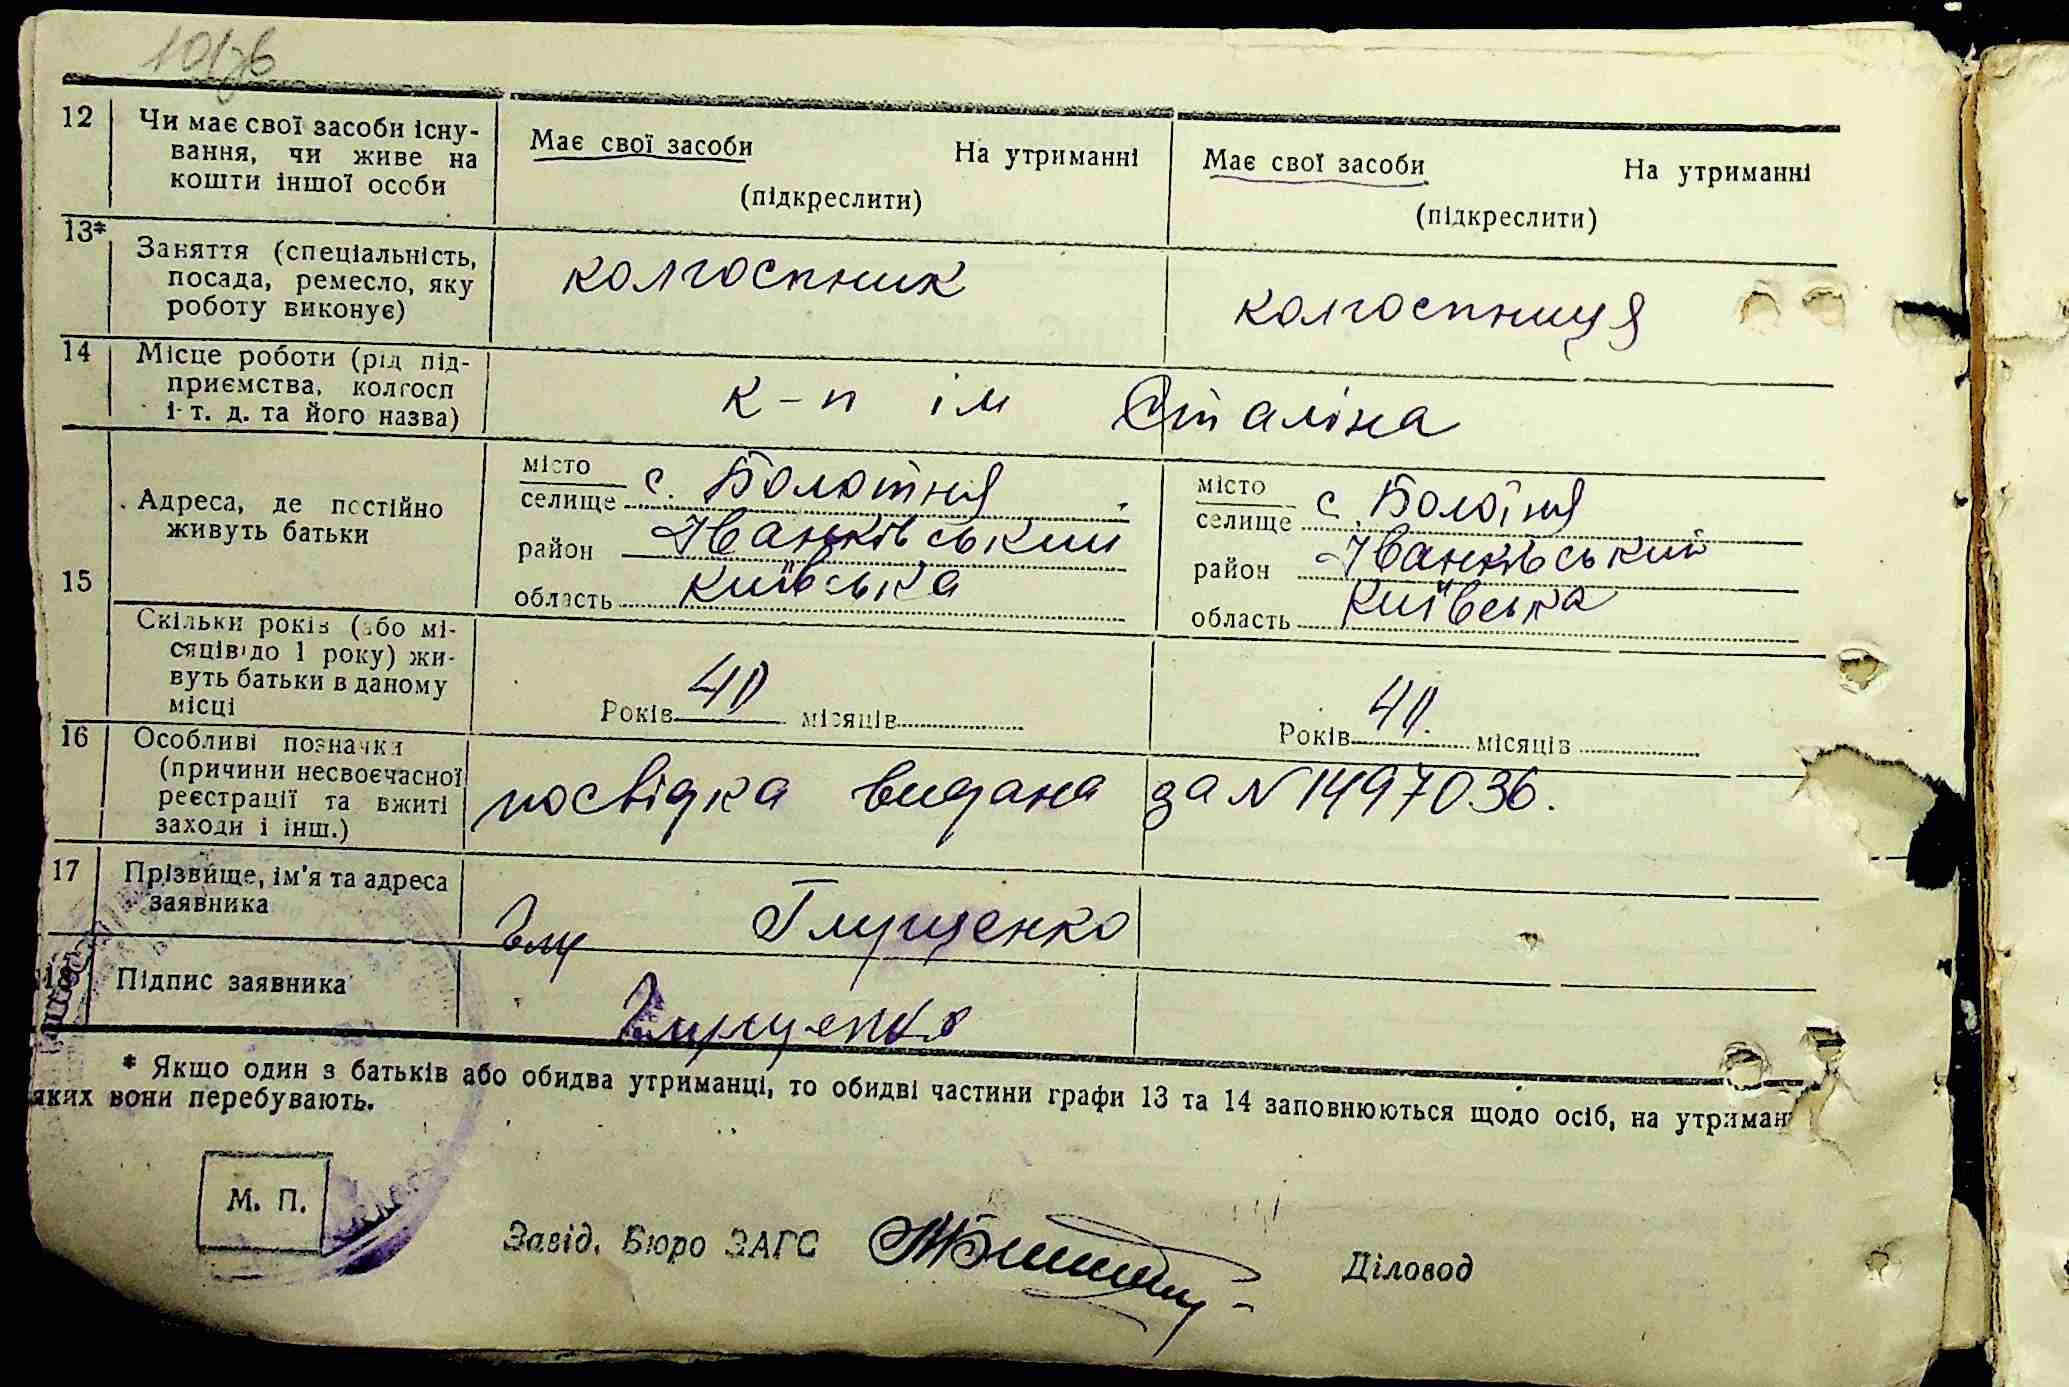 12 Чи має свої засоби існу-
вання, чи живе на
кошти іншої особи
Має свої засоби На утриманні
(підкреслити)
Має свої засоби На утриманні
(підкреслити)
13* Заняття (спеціальність,
посада, ремесло, яку
роботу виконує)
колгоспник
колгоспниця
14 Місце роботи (рід під-
приємства, колгосп
і т. д. та його назва)
к-п ім Сталіна
15
Адреса, де постійно
живуть батьки
місто
селище с. Болотня
район Іванківський
область київська
місто
селище с. Болотня
район Іванківський
область Київська
Скільки років (або мі-
сяців до 1 року) жи-
вуть батьки в даному
місці
Років 40 місяців
Років 40 місяців
16 Особливі позначки
(причини несвоєчасної
реєстрації та вжиті
заходи і інш.)
посвідка видана за N 1497036.
17 Прізвище, ім'я та адреса
заявника
Глущенко
18 Підпис заявника
Глущенко
* Якщо один з батьків або обидва утриманці, то обидві частини графи 13 та 14 заповнюються щодо осіб, на утриман
яких вони перебувають.
М. П.
Завід. Бюро ЗАГС
Діловод